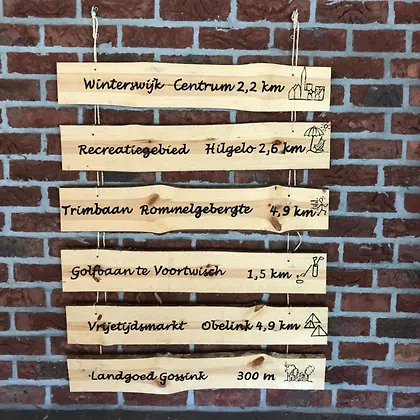 Winterswijk Centrum 2,2 km
Recreatiegebied Hilgelo 2,6 km
Trimbaan Rommelgebergte 4,9 km
Golfbaan te Voortwisch 1,5 km
Vrijetijdsmarkt Obelink 4,9 km
Landgoed Gossink 300 m